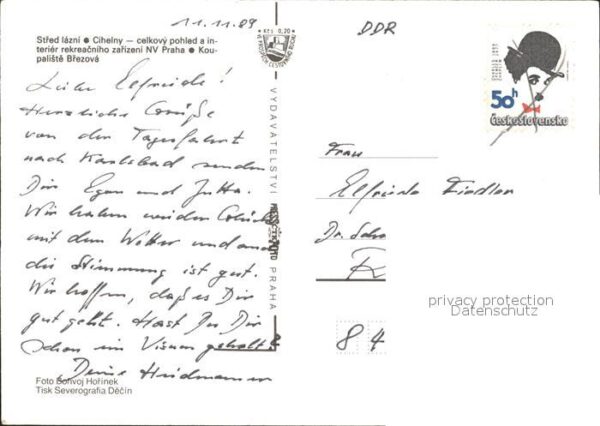 11.11.89
Střed lázní ● Cihelny — celkový pohled a in-
teriér rekreačního zařízení NV Praha ● Kou-
paliště Březová
Kčs 0,20
DDR
50h
Československo
Liebe Elfriede!
Herzliche Grüße
von der Tagesfahrt
nach Karlsbad senden
Dir Egon und Jutta.
Wir haben wieder Glück
mit dem Wetter und auch
die Stimmung ist gut.
Wir hoffen, daß es Dir
gut geht. Hast Du Dir
schon ein Visum geholt?
Deine
VYDAVATELSTVÍ
PRAHA
Frau
Elfriede Fiedler
Dr. 
R
84
privacy protection
Datenschutz
Foto Bořivoj Hořínek
Tisk Severografia Děčín